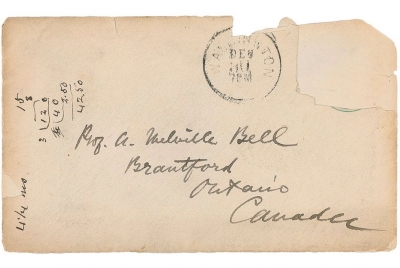 WASHINGTON
7PM
Prof. A. Melville Bell
Brantford
Ontario
Canada
15
3 120
40
2.80
42.80
4¼ mo